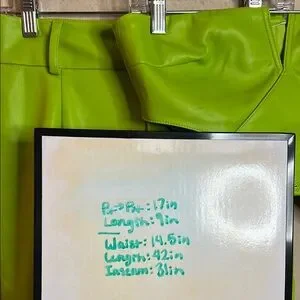 P→P: 17in
Length: 9in
Waist: 14.5in
Length: 42in
Inseam: 31in